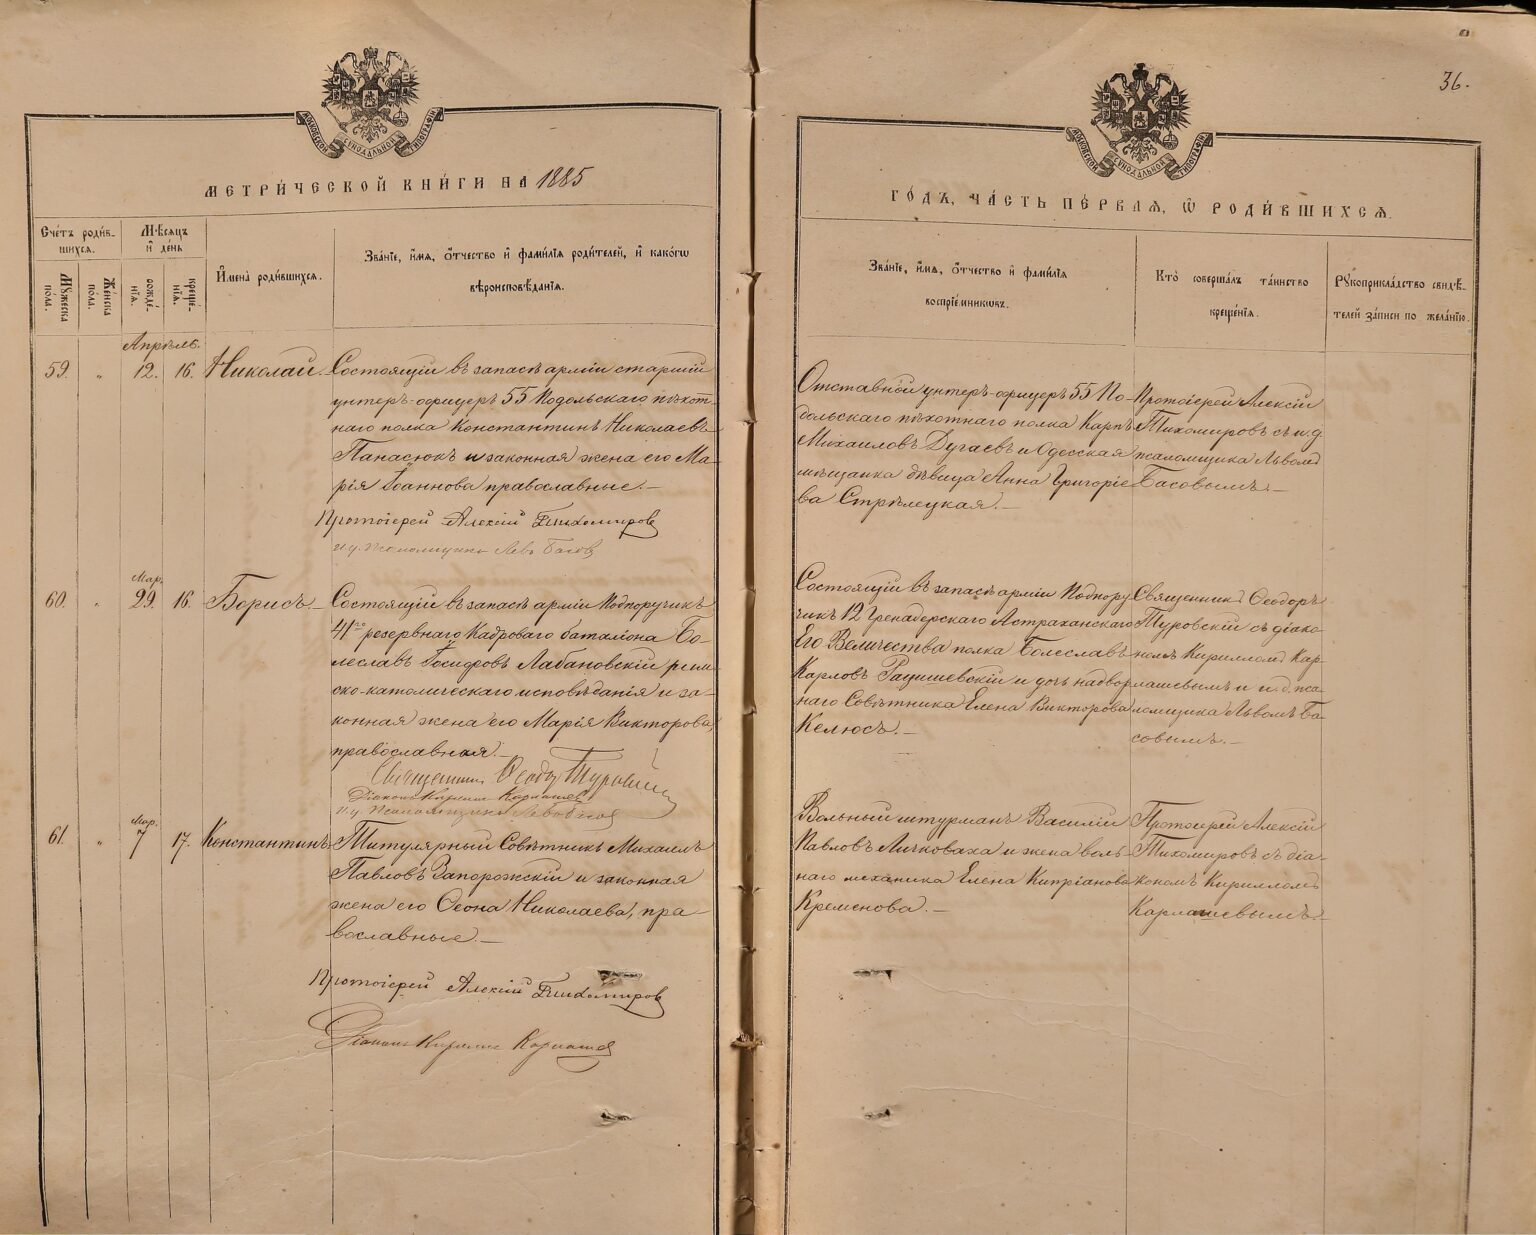 36.
МОСКОВСКОЙ СѴНОДАЛЬНОЙ ТИПОГРАФІИ
МОСКОВСКОЙ СѴНОДАЛЬНОЙ ТИПОГРАФІИ
МЕТРИ́ЧЕСКОЙ КНИ́ГИ НА 1885
ГО́ДЪ, ЧА́СТЬ ПЕ́РВАѦ, Ѡ РОДИ́ВШИХСѦ.
Сче́тъ роди́в-
шихся.
Мꙋ́жеска
пола.
Же́нска
пола.
Мѣ́сяцъ
и де́нь
рожде́-
нїя.
креще́-
нїя.
Имена̀ роди́вшихся.
Зва́нїе, и́мя, ѻ́тчество и фами́лїя роди́телей, и како́гѡ
вѣроисповѣ́данїя.
Зва́нїе, и́мя, ѻ́тчество и фами́лїя
воспрїе́мникѡвъ.
Кто̀ соверша́лъ та́инство
креще́нїя.
Рꙋкоприкла́дство свидѣ́-
телей за́писи по жела́нїю.
Апрѣль.
59. " 12. 16. Николай.
Состоящій въ запасѣ арміи старшій
унтеръ-офицеръ 55 Подольскаго пѣхот-
наго полка Константинъ Николаевъ
Панасюкъ и законная жена его Ма-
рія Іоаннова православные.—
Протоіерей Алексій Тихомировъ
и. д. псаломщика Левъ Басовъ
Отставной унтеръ-офицеръ 55 По-
дольскаго пѣхотнаго полка Карпъ
Михаиловъ Дугаевъ и Одесская
мѣщанка дѣвица Анна Григоріе-
ва Стрѣлецкая.—
Протоіерей Алексій
Тихомировъ съ и. д.
псаломщика Львомъ
Басовымъ.—
Мар.
60. " 29. 16. Борисъ.—
Состоящій въ запасѣ арміи Подпоручикъ
41го резервнаго Кадроваго баталіона Бо-
леславъ Іосифовъ Лабановскій рим-
ско-католическаго исповѣданія и за-
конная жена его Марія Викторова,
православная.—
Священникъ Ѳеодоръ Туровскій
Діаконъ Кириллъ Карлашевъ
и. д. Псаломщика Левъ Басовъ
Состоящій въ запасѣ арміи Подпору-
чикъ 12 Гренадерскаго Астраханскаго
Его Величества полка Болеславъ
Карловъ Рацишевскій и дочь надвор-
наго Совѣтника Елена Викторова
Келюсъ.—
Священникъ Ѳеодоръ
Туровскій съ діако-
номъ Кирилломъ Кар-
лашевымъ и и. д. пса-
ломщика Львомъ Ба-
совымъ.—
Мар.
61. " 7 17. Константинъ
Титулярный Совѣтникъ Михаилъ
Павловъ Запорожскій и законная
жена его Ѳеона Николаева, пра-
вославные.—
Протоіерей Алексій Тихомировъ
Діаконъ Кириллъ Карлашевъ
Вольный штурманъ Василій
Павловъ Личковаха и жена воль-
наго механика Елена Кипріанова
Кременова.—
Протоіерей Алексій
Тихомировъ съ діа-
кономъ Кирилломъ
Карлашевымъ.—